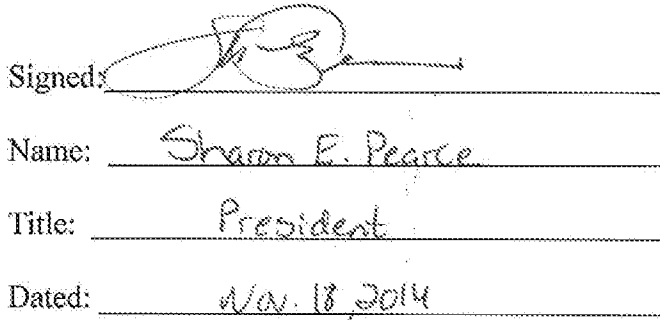 Signed:
Name: Sharon E. Pearce
Title: President
Dated: Nov. 18, 2014